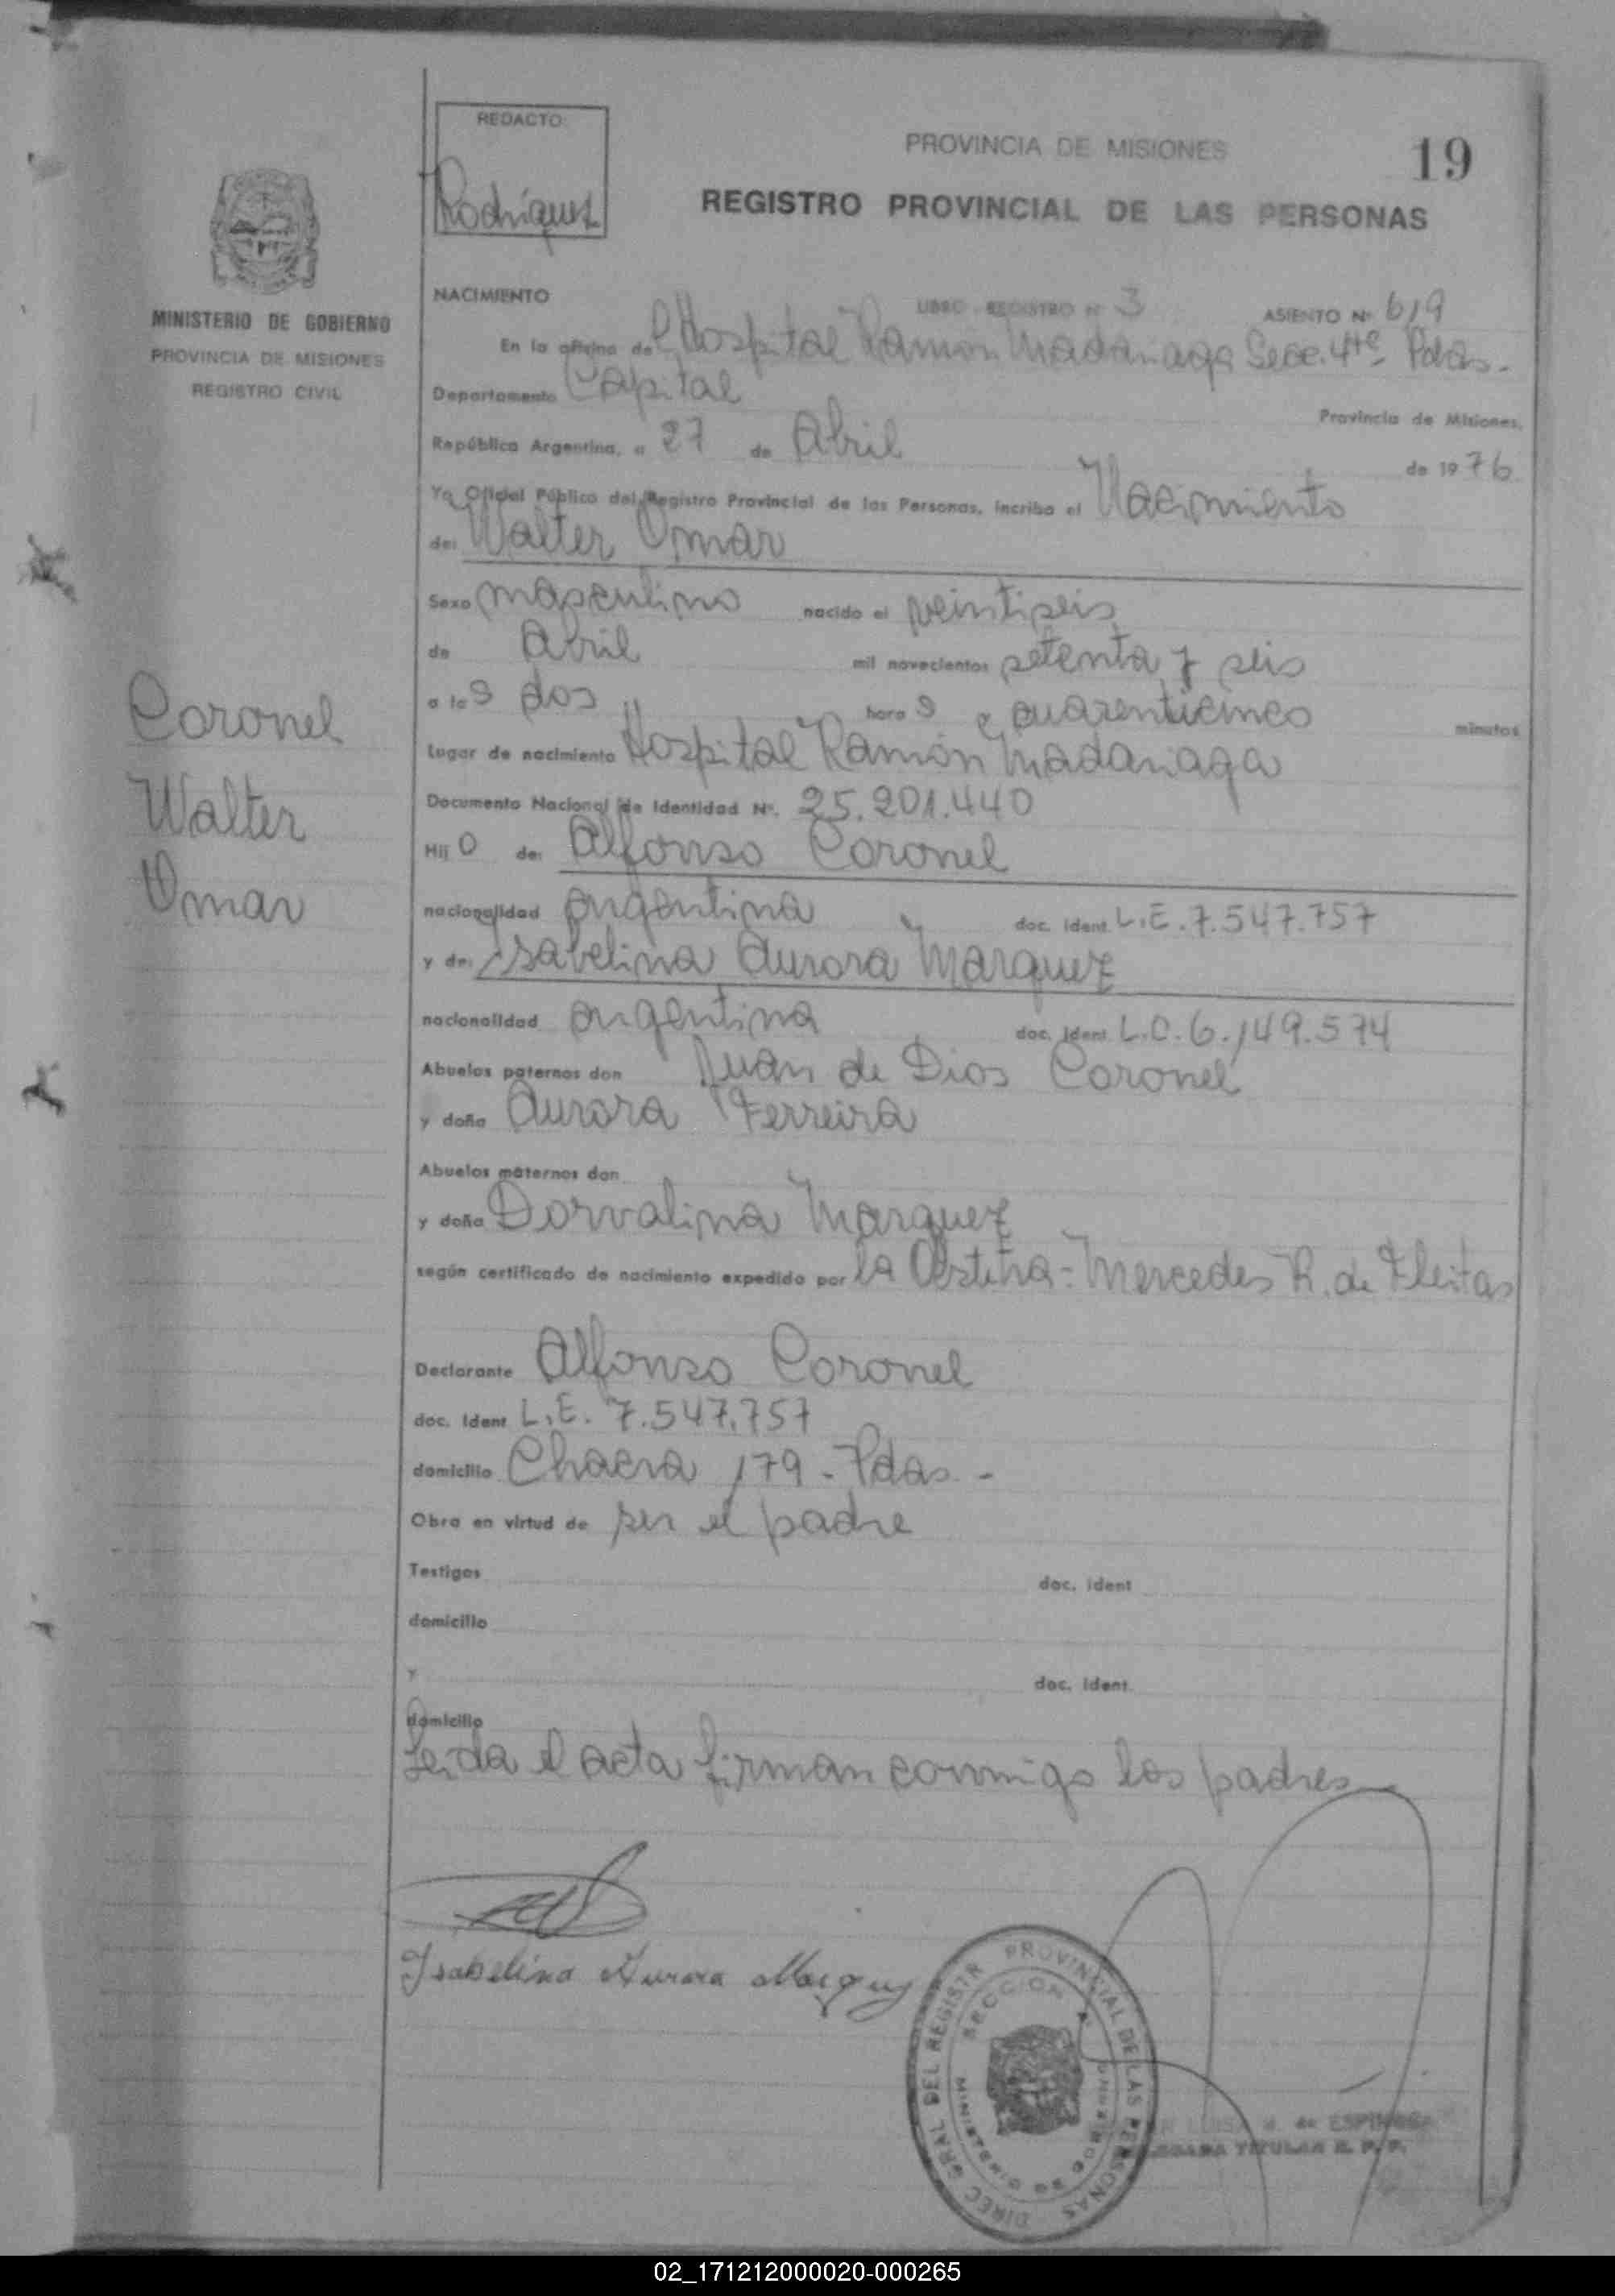 REDACTO:
Rodríguez
PROVINCIA DE MISIONES
19
REGISTRO PROVINCIAL DE LAS PERSONAS
MINISTERIO DE GOBIERNO
PROVINCIA DE MISIONES
REGISTRO CIVIL
NACIMIENTO LIBRO REGISTRO Nº 3 ASIENTO Nº 619
En la oficina del Hospital Ramón Madariaga Secc. 4ta Pdas.-
Departamento Capital Provincia de Misiones,
República Argentina, a 27 de Abril de 1976
Yo Oficial Público del Registro Provincial de las Personas, incribo el Nacimiento
de: Walter Omar
Sexo masculino nacido el veintiseis
de Abril mil novecientos setenta y seis
a las dos horas cuarenticinco minutos
Lugar de nacimiento Hospital Ramón Madariaga
Documento Nacional de Identidad Nº. 25.201.440
Hijo de: Alfonso Coronel
nacionalidad argentina doc. ident. L.E. 7.547.757
y de: Isabelina Aurora Marquez
nacionalidad argentina doc. ident. L.C. 6.149.574
Abuelos paternos don Juan de Dios Coronel
y doña Aurora Ferreira
Abuelos maternos don
y doña Dorvalina Marquez
según certificado de nacimiento expedido por la Obstetra- Mercedes R. de Fleitas
Declarante Alfonso Coronel
doc. Ident L.E. 7.547.757
domicilio Chacra 179 - Pdas. -
Obra en virtud de ser el padre
Testigos doc. ident
domicilio
y doc. ident.
domicilio
Leida el acta firman conmigo los padres
Coronel
Walter
Omar
Isabelina Aurora Marquez
DIREC. GRAL DEL REGISTR PROVINCIAL DE LAS PERSONAS
SECCION
MINISTERIO DE GOBIERNO
LUISA M. de ESPINOSA
TITULAR R. P. P.
02_171212000020-000265